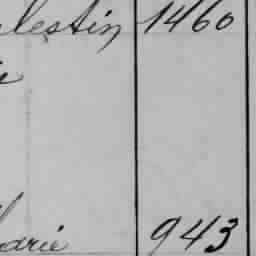 lestin 1460
arie 943